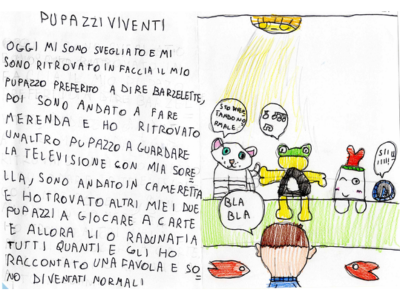 PUPAZZI VIVENTI
OGGI MI SONO SVEGLIATO E MI
SONO RITROVATO IN FACCIA IL MIO
PUPAZZO PREFERITO A DIRE BARZELETTE,
POI SONO ANDATO A FARE
MERENDA E HO RITROVATO
UN'ALTRO PUPAZZO A GUARDARE
LA TELEVISIONE CON MIA SORE
LLA, SONO ANDATO IN CAMERETTA
E HO TROVATO ALTRI MIEI DUE
PUPAZZI A GIOCARE A CARTE
E ALLORA LI O RADUNATI A
TUTTI QUANTI E GLI HO
RACCONTATO UNA FAVOLA E SO
NO DIVENTATI NORMALI
STO DIVEN
TANDO NO
RMALE
SII
!!!!
BLA
BLA